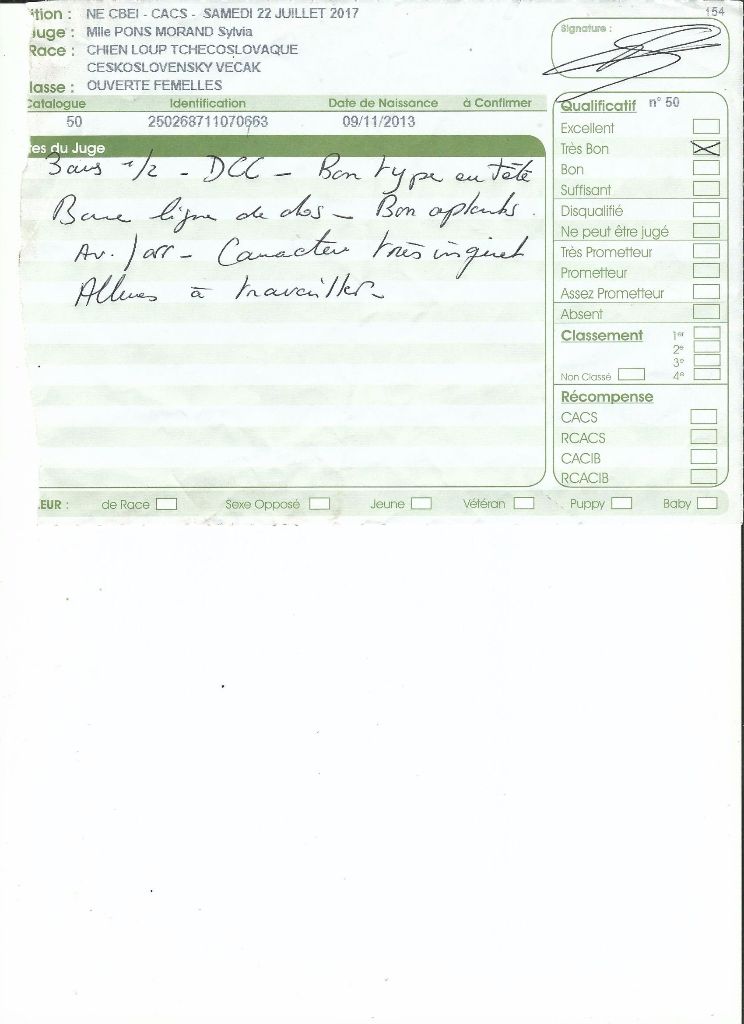 ition : NE CBEI - CACS - SAMEDI 22 JUILLET 2017
Juge : Mlle PONS MORAND Sylvia
Race : CHIEN LOUP TCHECOSLOVAQUE
CESKOSLOVENSKY VECAK
lasse : OUVERTE FEMELLES
Catalogue Identification Date de Naissance à Confirmer
50 250268711070663 09/11/2013
tes du Juge
3 ans 1/2 - DCC - Bon type en tête
Bonne ligne de dos - Bon aplombs.
Av. / arr - Caractère très inquiet
Allures à travailler -
.EUR : de Race Sexe Opposé Jeune Vétéran Puppy Baby
154
Signature :
Qualificatif n° 50
Excellent
Très Bon X
Bon
Suffisant
Disqualifié
Ne peut être jugé
Très Prometteur
Prometteur
Assez Prometteur
Absent
Classement 1er
2e
3e
Non Classé 4e
Récompense
CACS
RCACS
CACIB
RCACIB